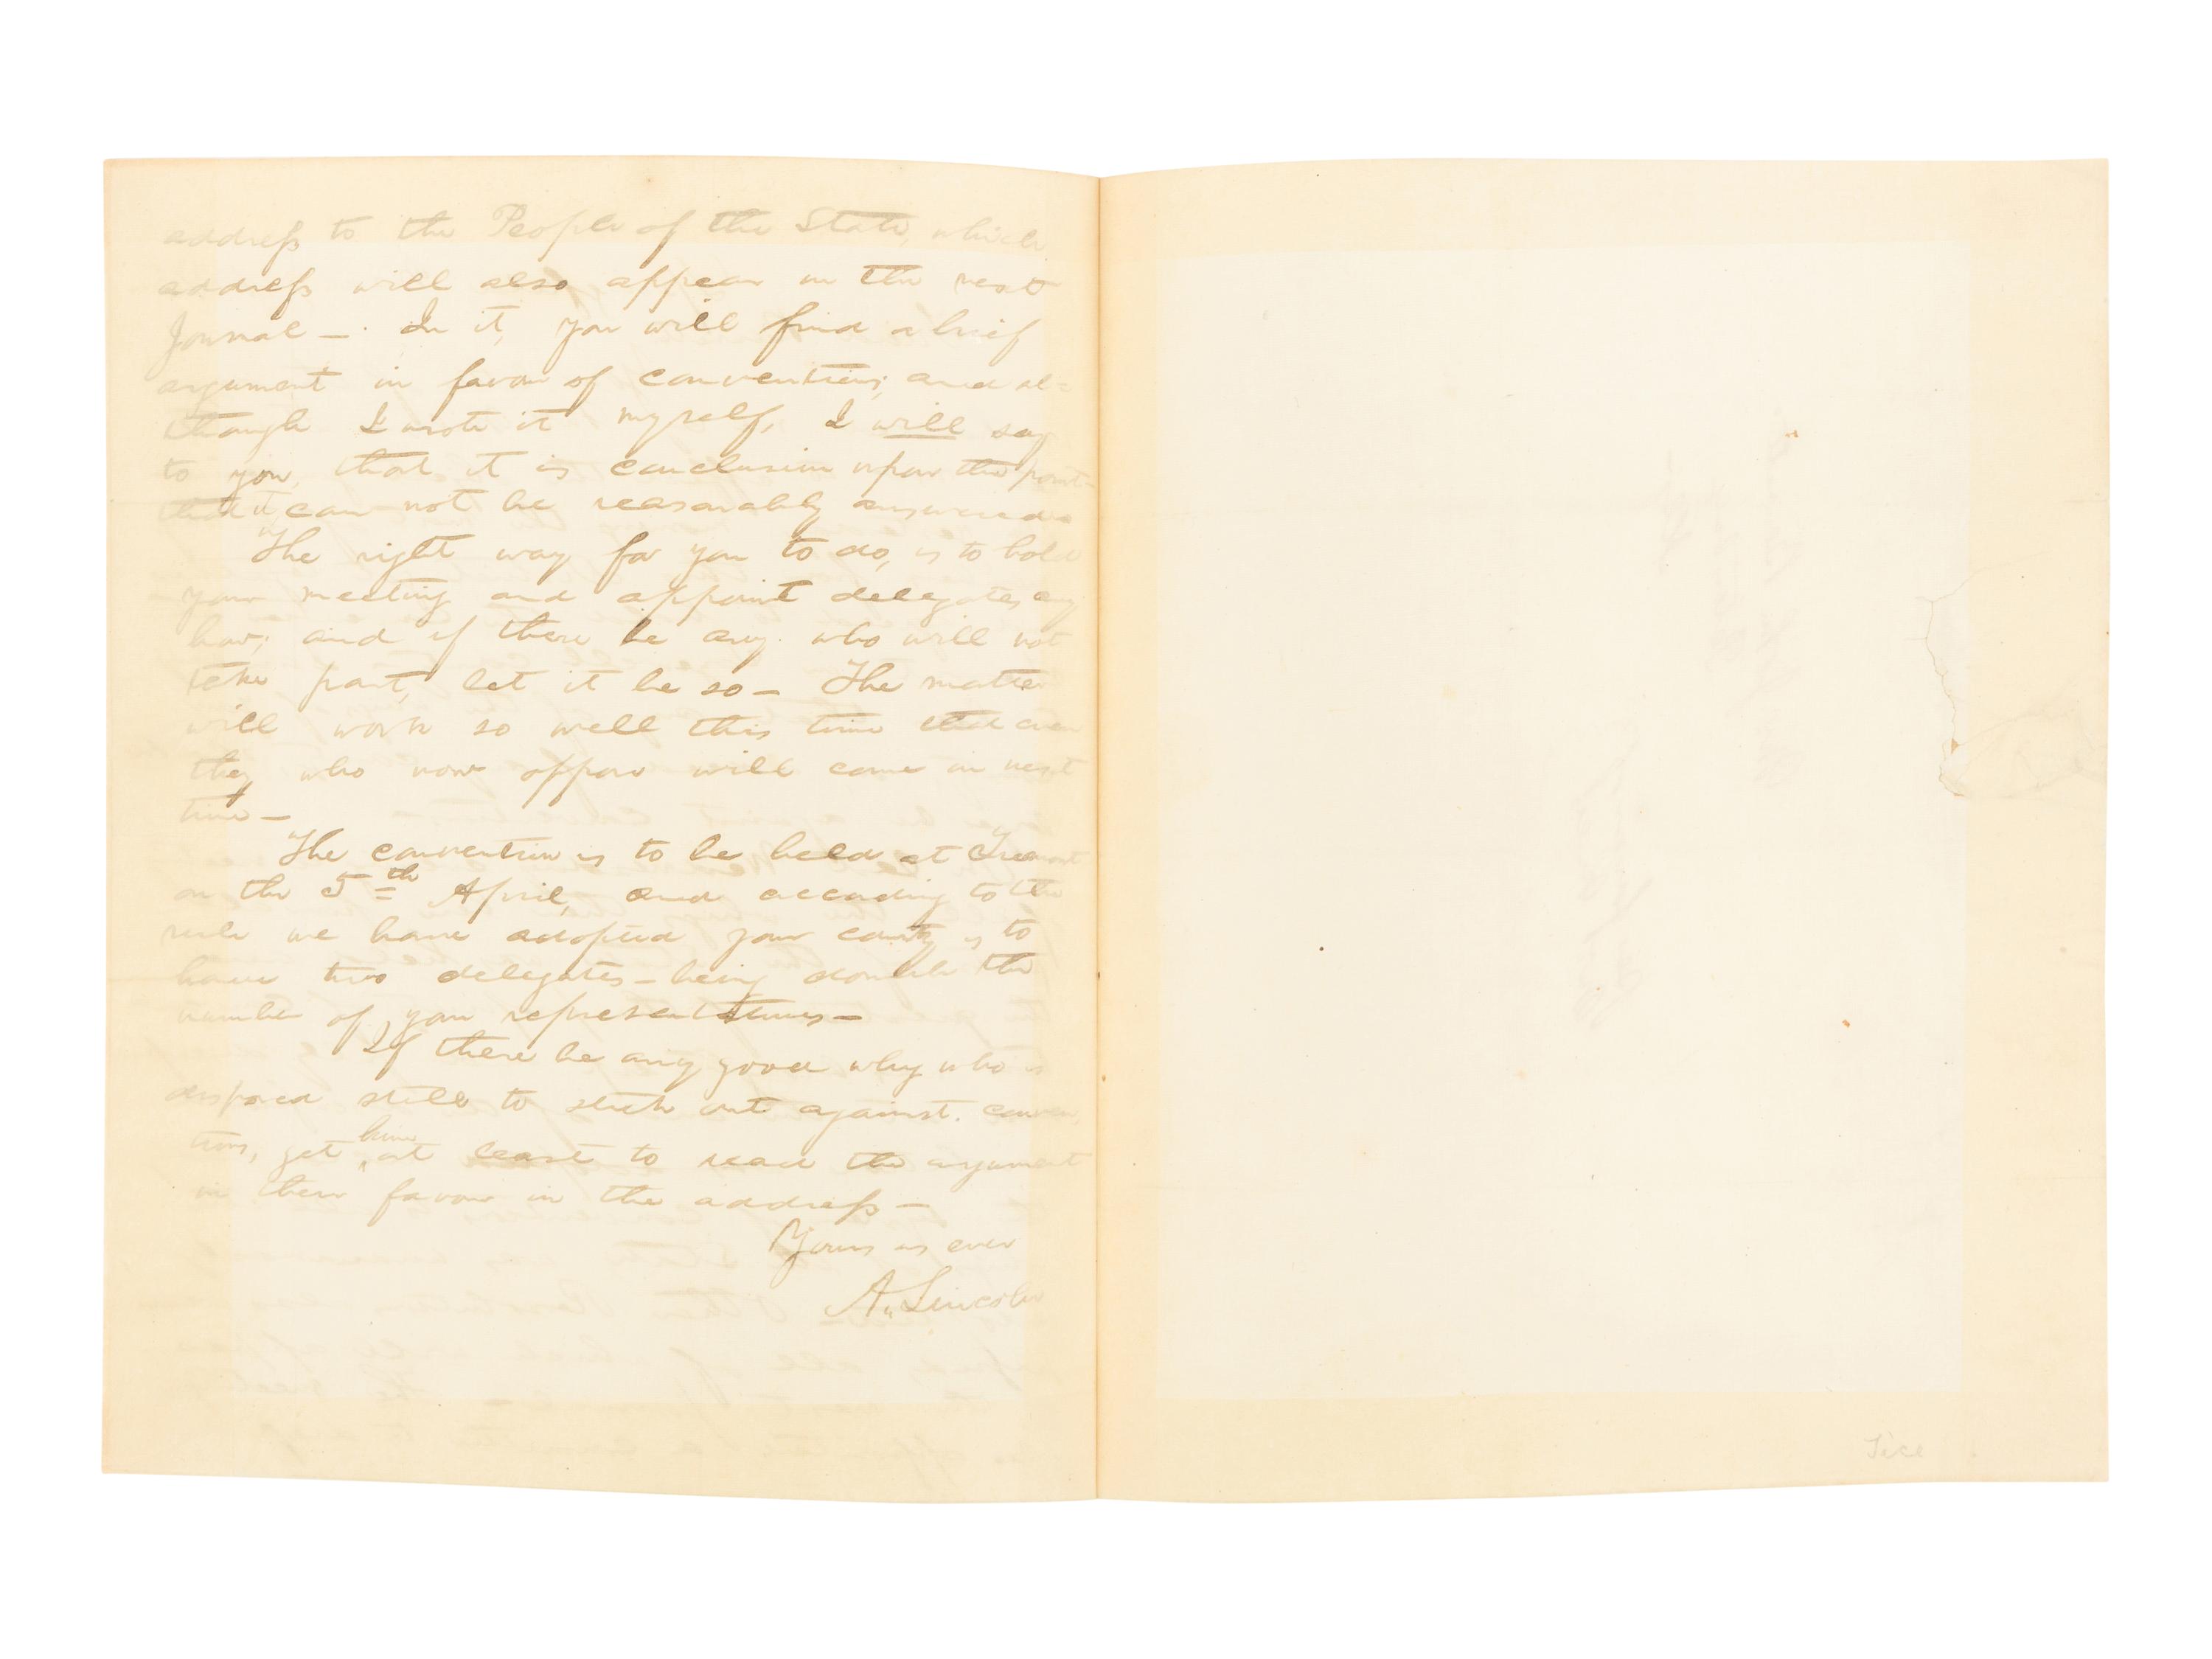 address to the People of the State, which
address will also appear in the next
Journal - In it, you will find a brief
argument in favor of conventions; and al=
though I wrote it myself, I will say
to you, that it is conclusive upon the point-
that it can not be reasonably answered-
The right way for you to do, is to hold
your meeting and appoint delegates any
how; and if there be any who will not
take part, let it be so - The matter
will work so well this time that even
they who now oppose will come in next
time -
The convention is to be held at Tremont
on the 5th April, and according to the
rule we have adopted your county is to
have two delegates - being double the
number of your representatives -
If there be any good whig who is
disposed still to stick out against conven
tions, get him at least to read the argument
in their favor in the address -
Yours as ever
A. Lincoln
Tice